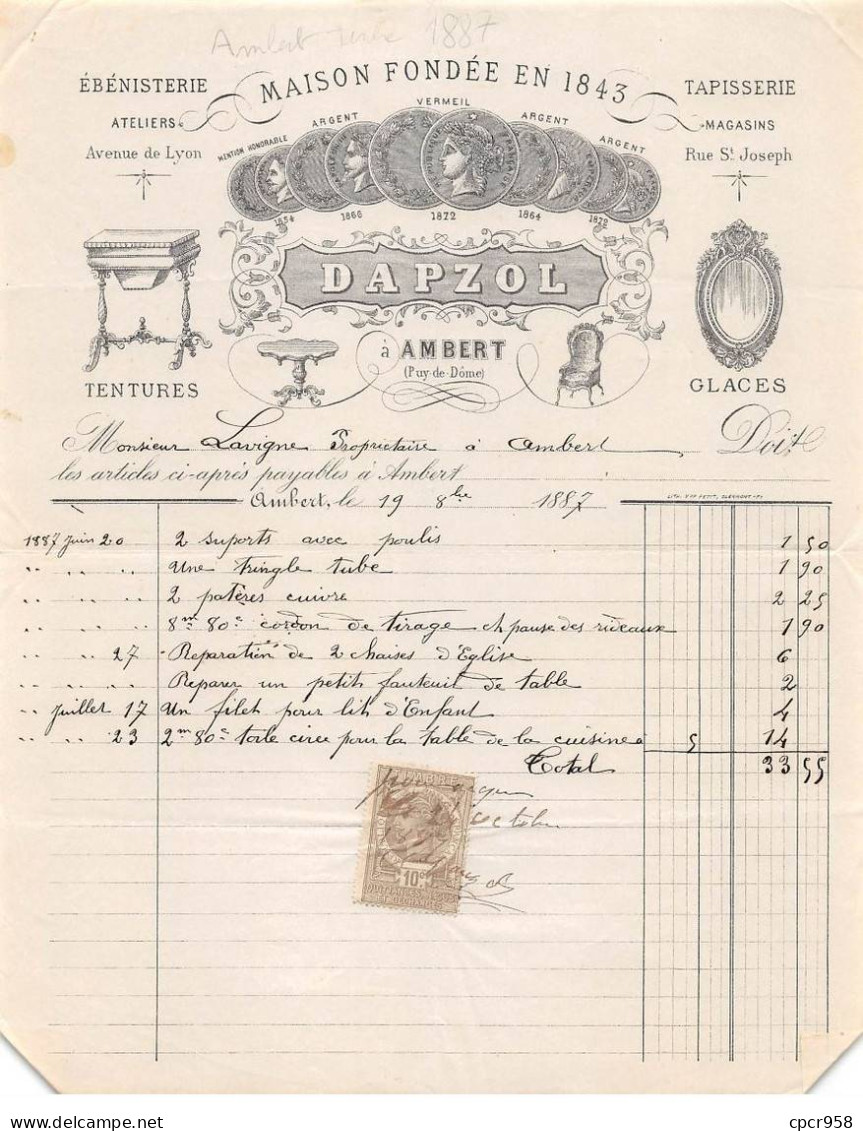 Ambert 1887
MAISON FONDÉE EN 1843
ÉBÉNISTERIE
ATELIERS
Avenue de Lyon
TAPISSERIE
MAGASINS
Rue St. Joseph
MENTION HONORABLE ARGENT VERMEIL ARGENT ARGENT
1854 1860 1872 1864 1872
RÉPUBLIQUE FRANÇAISE
DAPZOL
à AMBERT
(Puy-de-Dôme)
TENTURES
GLACES
Monsieur Lavigne Propriétaire à Ambert, Doit
les articles ci-après payables à Ambert
Ambert, le 19 8bre 1887
1887 Juin 20 2 suports avec poulis 1 50
" " " Une tringle tube 1 90
" " " 2 patères cuivre 2 25
" " " 8m 80c cordon de tirage et pause des rideaux 1 90
" " 27 Reparation de 2 chaises d'Eglise 6
" " " Reparer un petit fauteuil de table 2
" Juillet 17 Un filet pour lit d'Enfant 4
" " 23 2m 80c toile ciree pour la table de la cuisine a 5 14
Total 33 55
pour acquit
octobre
10c
QUITTANCES REÇUS
ET DÉCHARGES
cpcr958